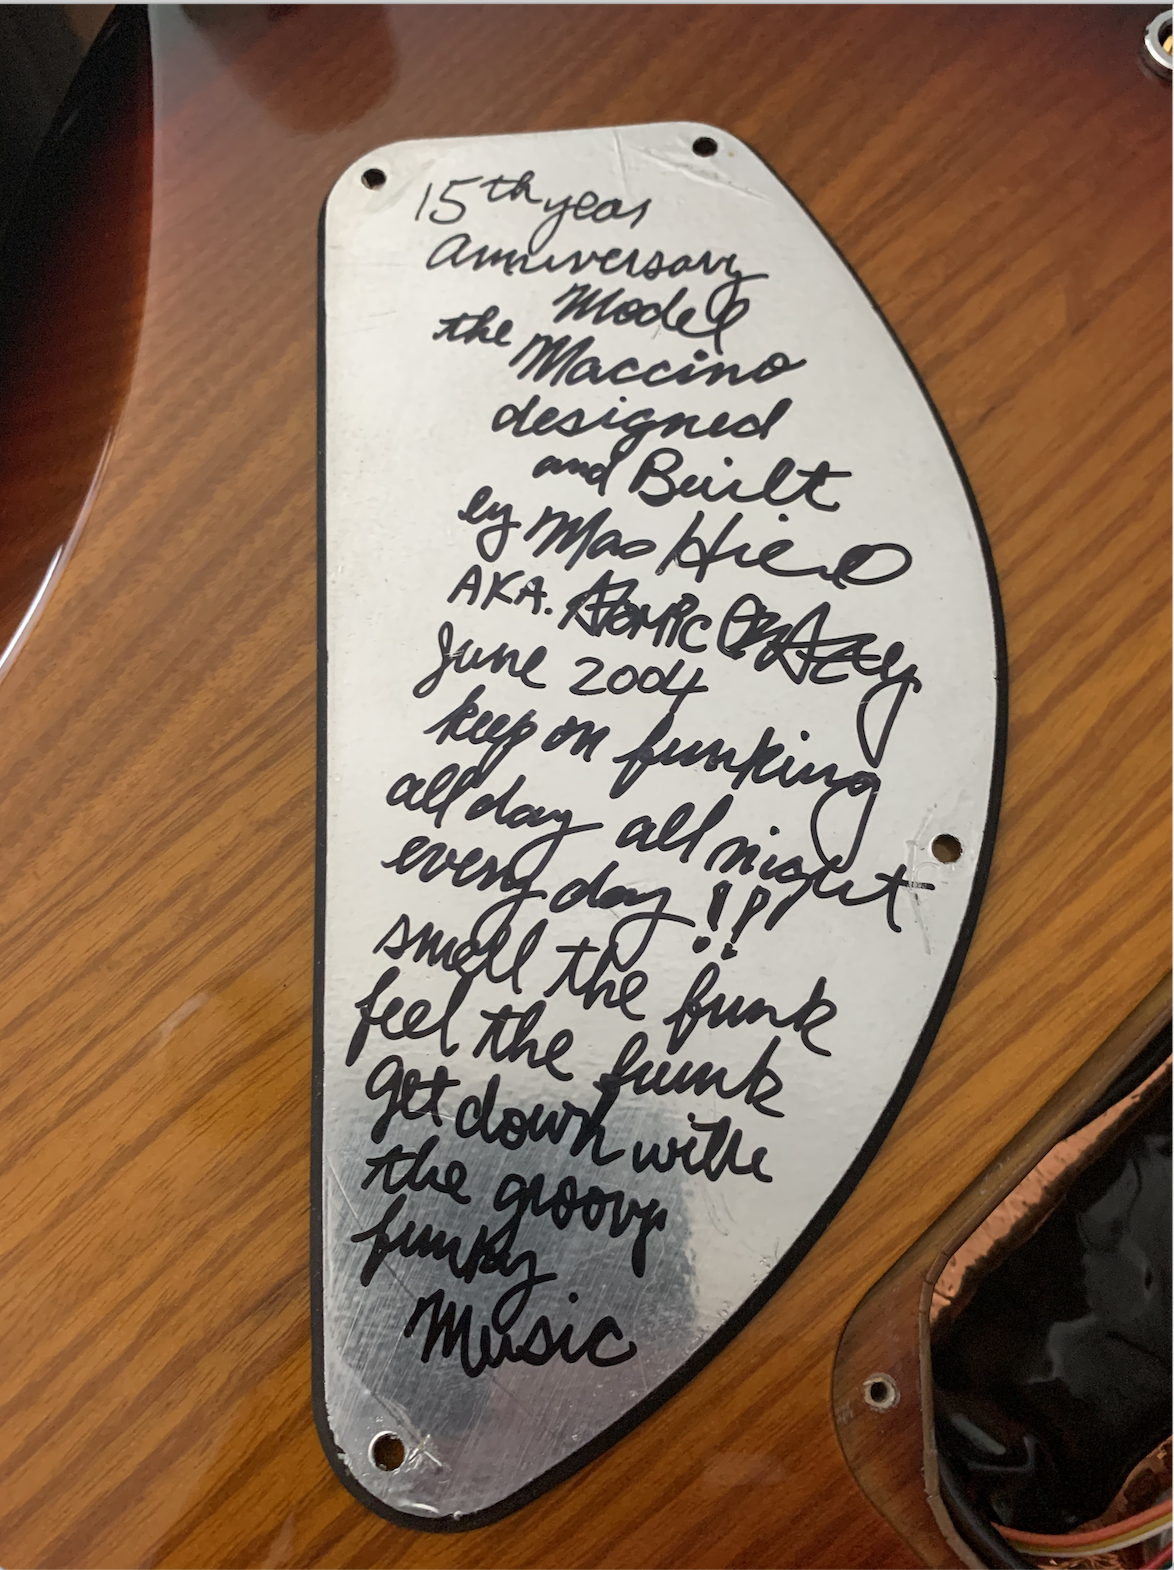 15th year
anniversary
Model
the Maccino
designed
and Built
by Mas Hino
AKA. Atomic
June 2004
keep on funking
all day all night
every day !!
smell the funk
feel the funk
get down with
the groovy
funky
Music